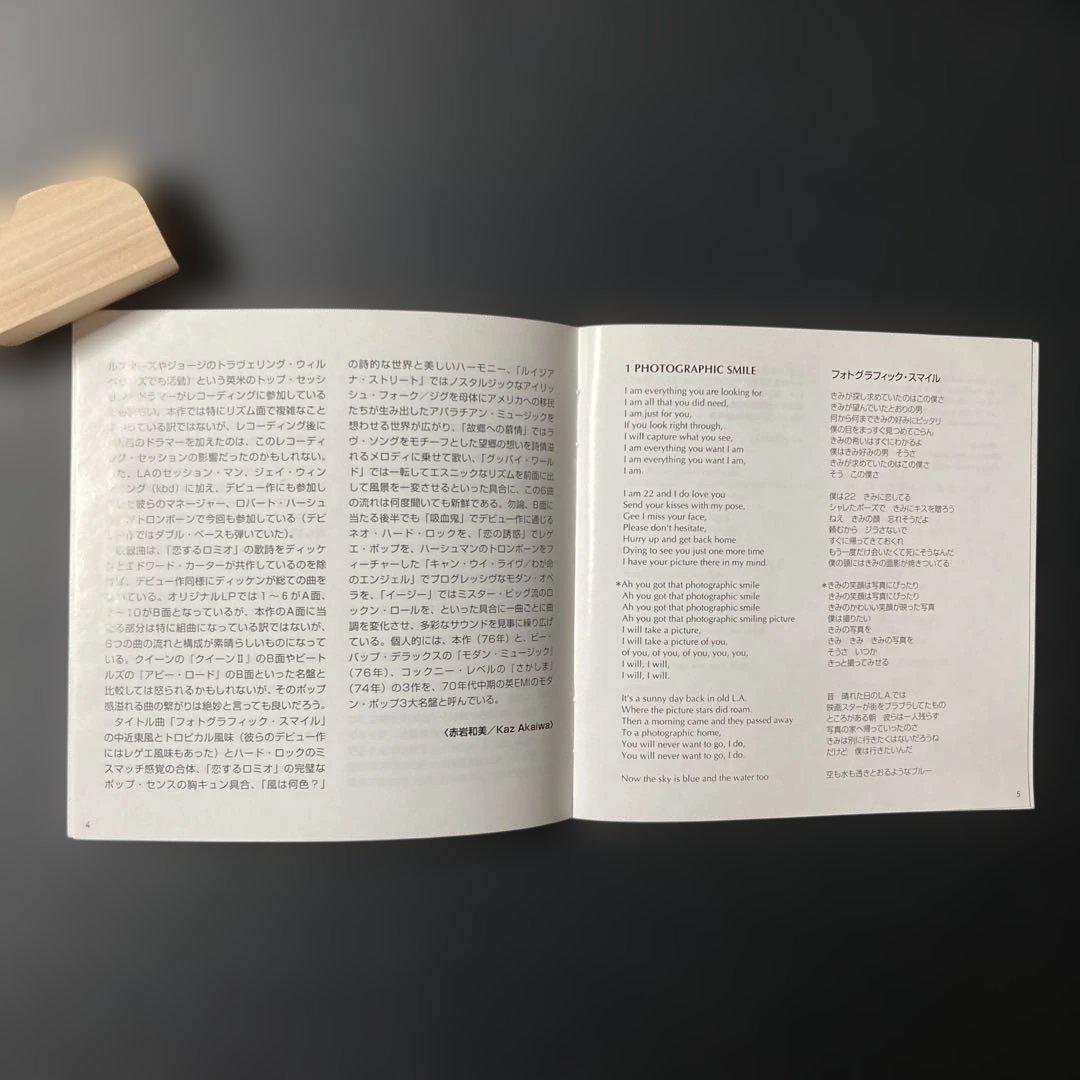 ルスターズやジョージのトラヴェリング・ウィル
ズでも活動）という英米のトップ・セッシ
ドラマーがレコーディングに参加している
本作では特にリズム面で複雑なこと
っている訳ではないが、レコーディング後に
のドラマーを加えたのは、このレコーディ
グ・セッションの影響だったのかもしれない。
た、LAのセッション・マン、ジェイ・ウィン
ング（kbd）に加え、デビュー作にも参加し
た彼らのマネージャー、ロバート・ハーシュ
がトロンボーンで今回も参加している（デビ
作ではダブル・ベースも弾いていた）。
収録曲は、「恋するロミオ」の歌詩をディッケ
ンとエドワード・カーターが共作しているのを除
けば、デビュー作同様にディッケンが総ての曲を
書いている。オリジナルLPでは１〜６がA面、
〜10がB面となっているが、本作のA面に当
たる部分は特に組曲になっている訳ではないが、
６つの曲の流れと構成が素晴らしいものになって
いる。クイーンの「クイーンⅡ」のB面やビート
ルズの「アビー・ロード」のB面といった名盤と
比較しては怒られるかもしれないが、そのポップ
感溢れる曲の繋がりは絶妙と言っても良いだろう。
タイトル曲「フォトグラフィック・スマイル」
の中近東風とトロピカル風味（彼らのデビュー作
にはレゲエ風味もあった）とハード・ロックのミ
スマッチ感覚の合体、「恋するロミオ」の完璧な
ポップ・センスの胸キュン具合、「風は何色？」
4
の詩的な世界と美しいハーモニー、「ルイジア
ナ・ストリート」ではノスタルジックなアイリッ
シュ・フォーク／ジグを母体にアメリカへの移民
たちが生み出したアパラチアン・ミュージックを
想わせる世界が広がり、「故郷への慕情」ではラ
ヴ・ソングをモチーフとした望郷の想いを詩情溢
れるメロディに乗せて歌い、「グッバイ・ワール
ド」では一転してエスニックなリズムを前面に出
して風景を一変させるといった具合に、この６曲
の流れは何度聞いても新鮮である。勿論、B面に
当たる後半でも「吸血鬼」でデビュー作に通じる
ネオ・ハード・ロックを、「恋の誘惑」でレゲ
エ・ポップを、ハーシュマンのトロンボーンをフ
ィーチャーした「キャン・ウイ・ライヴ／わが命
のエンジェル」でプログレッシヴなモダン・オペ
ラを、「イージー」ではミスター・ビッグ流のロ
ックン・ロールを、といった具合に一曲ごとに曲
調を変化させ、多彩なサウンドを見事に繰り広げ
ている。個人的には、本作（76年）と、ビー・
バップ・デラックスの「モダン・ミュージック」
（76年）、コックニー・レベルの「さかしま」
（74年）の３作を、70年代中期の英EMIのモダ
ン・ポップ３大名盤と呼んでいる。
〈赤岩和美／Kaz Akaiwa〉
1 PHOTOGRAPHIC SMILE
I am everything you are looking for
I am all that you did need,
I am just for you,
If you look right through,
I will capture what you see,
I am everything you want I am,
I am everything you want I am,
I am.
I am 22 and I do love you
Send your kisses with my pose,
Gee I miss your face,
Please don't hesitate,
Hurry up and get back home
Dying to see you just one more time
I have your picture there in my mind.
*Ah you got that photographic smile
Ah you got that photographic smile
Ah you got that photographic smile
Ah you got that photographic smiling picture
I will take a picture,
I will take a picture of you,
of you, of you, of you, you, you,
I will, I will,
I will, I will.
It's a sunny day back in old L.A.
Where the picture stars did roam.
Then a morning came and they passed away
To a photographic home,
You will never want to go, I do,
You will never want to go, I do.
Now the sky is blue and the water too
フォトグラフィック・スマイル
きみが探し求めていたのはこの僕さ
きみが望んでいたとおりの男
何から何まできみの好みにピッタリ
僕の目をまっすぐ見つめてごらん
きみの希いはすぐにわかるよ
僕はきみ好みの男　そうさ
きみが求めていたのはこの僕さ
そう　この僕さ
僕は22　きみに恋してる
シャレたポーズで　きみにキスを贈ろう
ねえ　きみの顔　忘れそうだよ
頼むから　ジラさないで
すぐに帰ってきておくれ
もう一度だけ会いたくて死にそうなんだ
僕の頭にはきみの面影が焼きついてる
*きみの笑顔は写真にぴったり
きみの笑顔は写真にぴったり
きみのかわいい笑顔が映った写真
僕は撮りたい
きみの写真を
きみ　きみ　きみの写真を
そうさ　いつか
きっと撮ってみせる
昔　晴れた日のL.A.では
映画スターが街をブラブラしてたもの
ところがある朝　彼らは一人残らず
写真の家へ帰っていったのさ
きみは別に行きたくはないだろうね
だけど　僕は行きたいんだ
空も水も透きとおるようなブルー
5